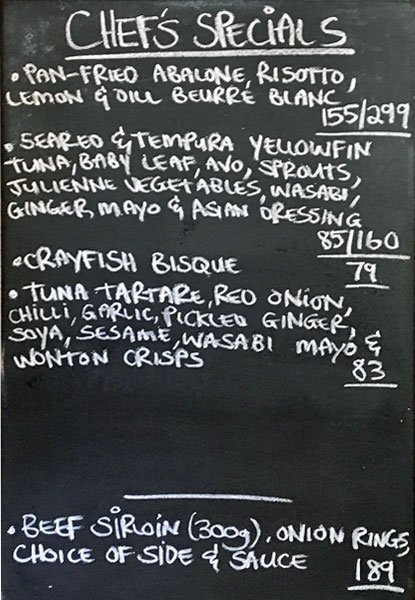 CHEF'S SPECIALS
• PAN-FRIED ABALONE, RISOTTO,
LEMON & DILL BEURRE BLANC
155/299
• SEARED & TEMPURA YELLOWFIN
TUNA, BABY LEAF, AVO, SPROUTS,
JULIENNE VEGETABLES, WASABI,
GINGER MAYO & ASIAN DRESSING
85/160
• CRAYFISH BISQUE
79
• TUNA TARTARE, RED ONION,
CHILLI, GARLIC, PICKLED GINGER,
SOYA, SESAME, WASABI MAYO &
WONTON CRISPS
83
• BEEF SIRLOIN (300g), ONION RINGS,
CHOICE OF SIDE & SAUCE
189